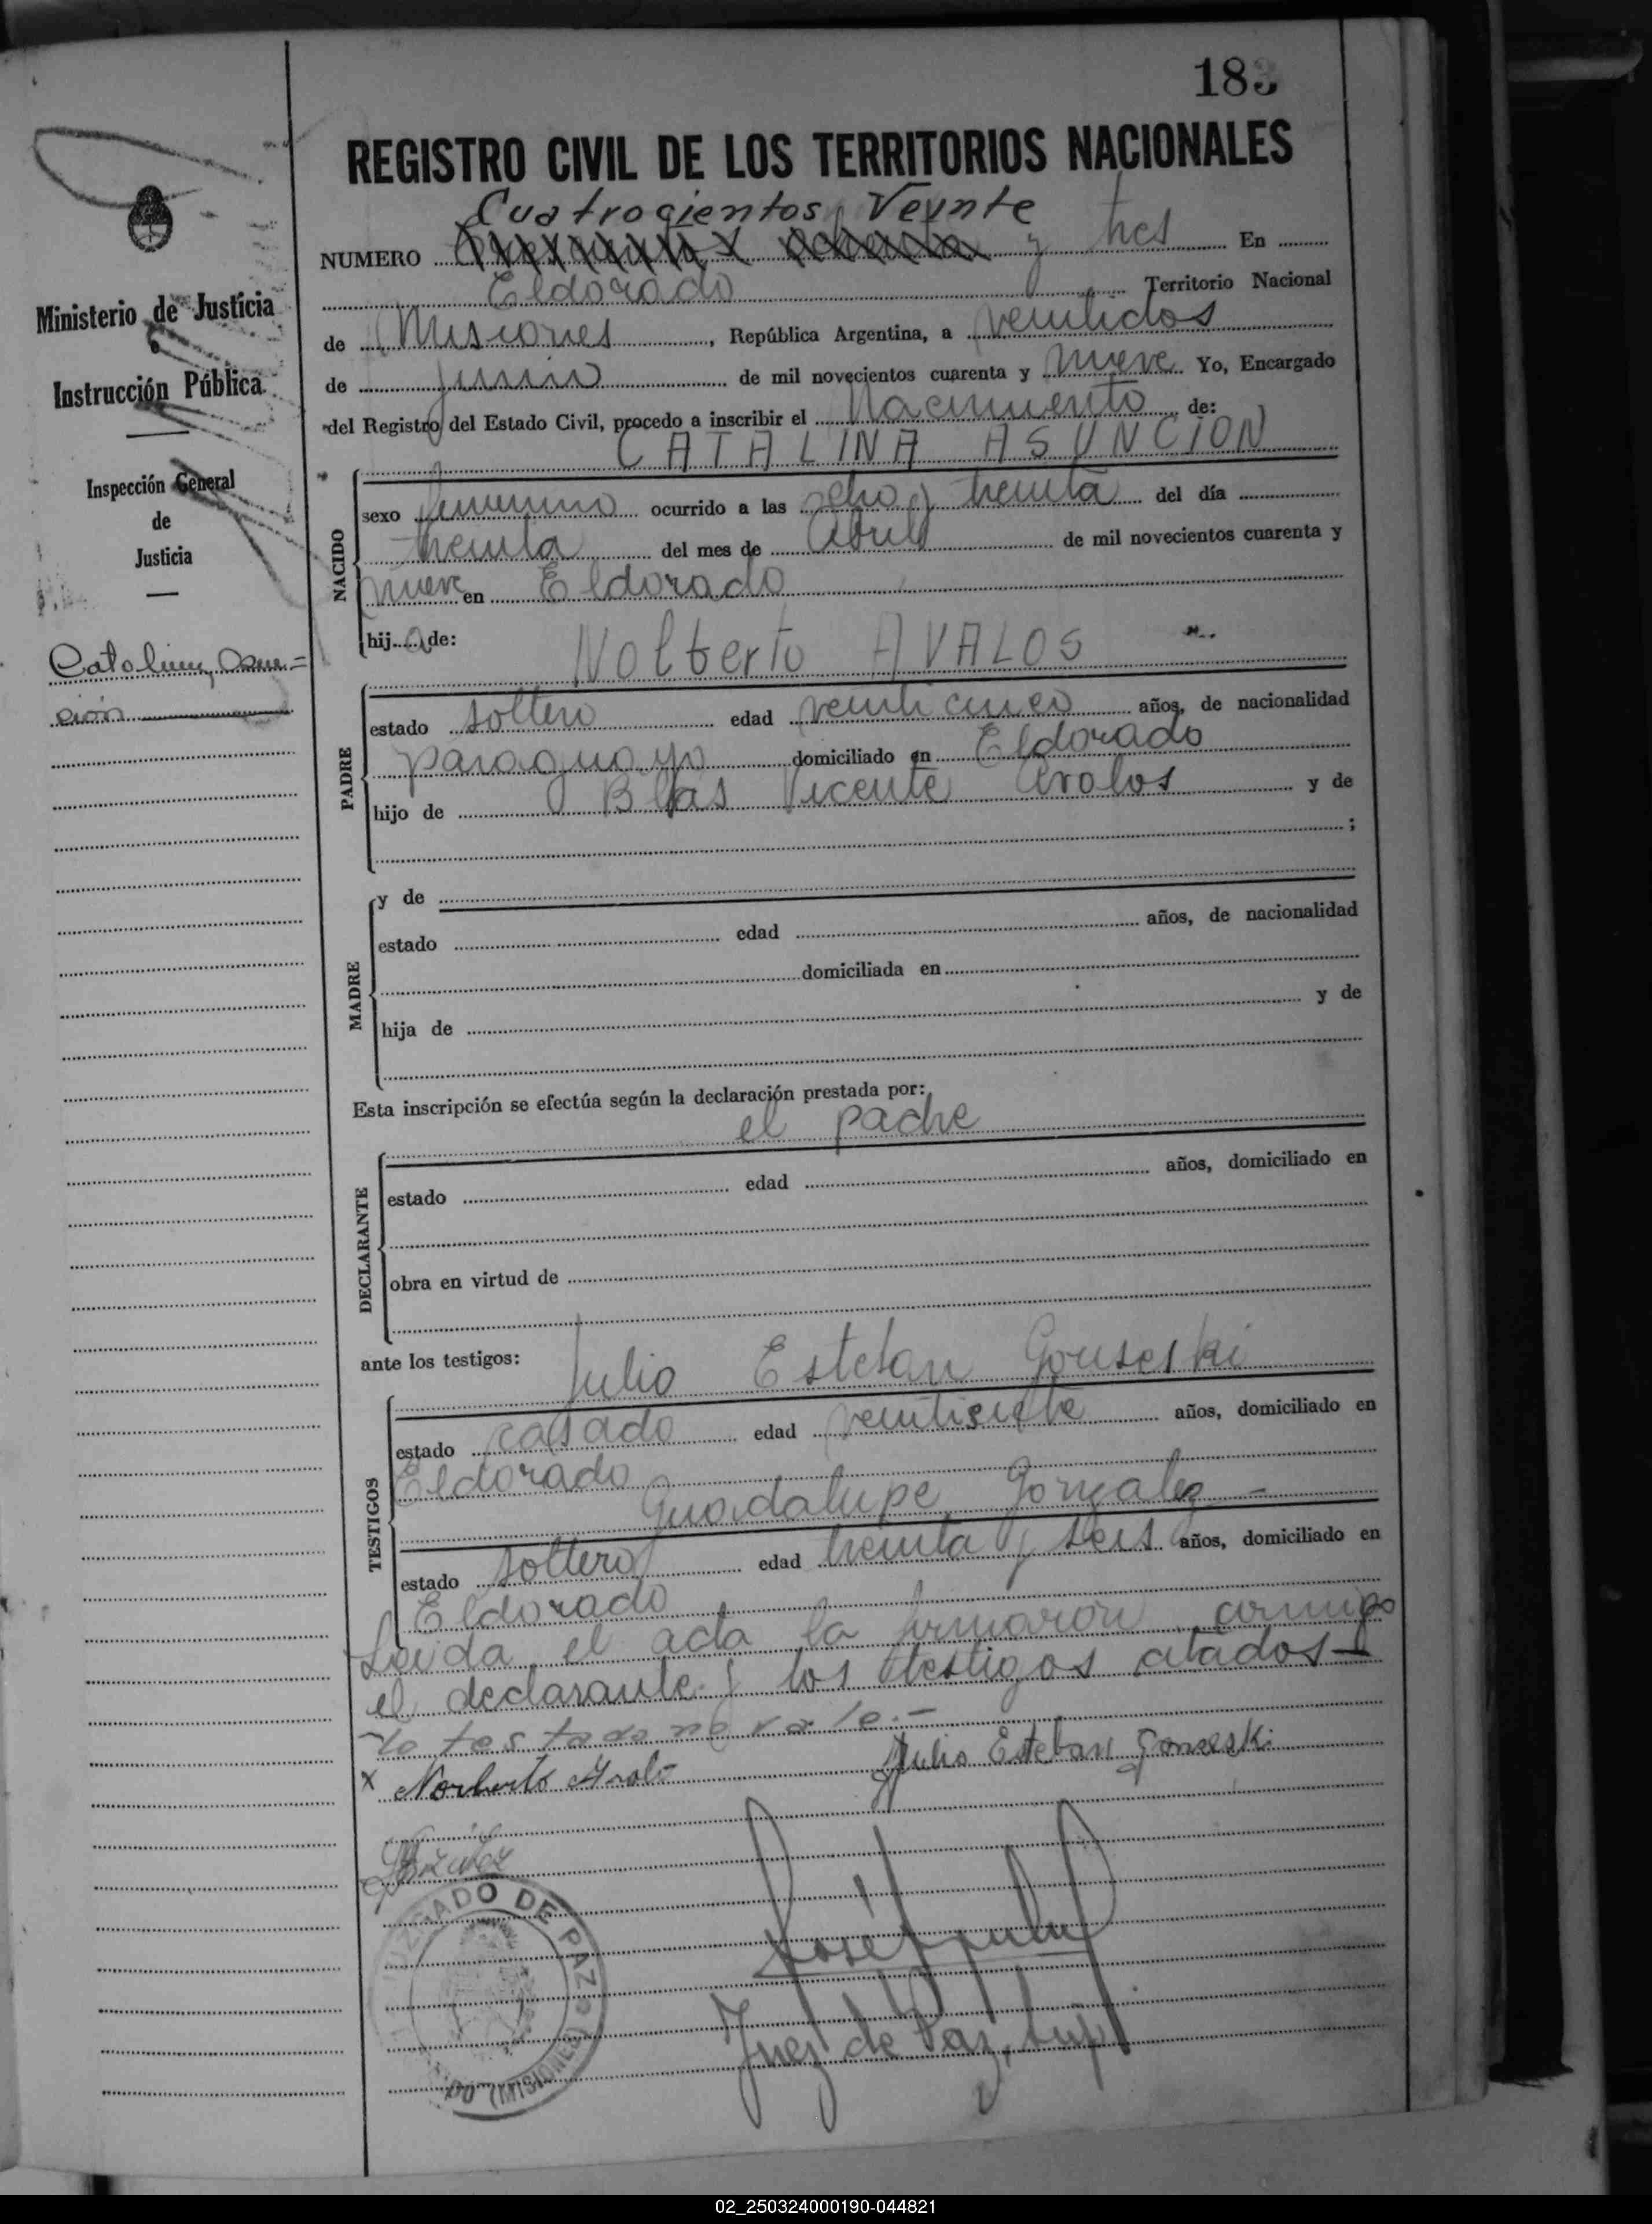 183
REGISTRO CIVIL DE LOS TERRITORIOS NACIONALES
Cuatrocientos Veynte
NUMERO y tres En
Eldorado Territorio Nacional
de Misiones, República Argentina, a veintidos
de junio de mil novecientos cuarenta y nueve Yo, Encargado
del Registro del Estado Civil, procedo a inscribir el Nacimiento de:
CATALINA ASUNCION
NACIDO
sexo femenino ocurrido a las ocho y treinta del día
treinta del mes de Abril de mil novecientos cuarenta y
nueve en Eldorado
hija de: Nolberto AVALOS
PADRE
estado soltero edad veinticinco años, de nacionalidad
paraguayo domiciliado en Eldorado
hijo de Blas Vicente Avalos y de
;
MADRE
y de
estado edad años, de nacionalidad
domiciliada en
hija de y de
Esta inscripción se efectúa según la declaración prestada por:
el padre
DECLARANTE
estado edad años, domiciliado en
obra en virtud de
ante los testigos: Julio Esteban Gouseski
TESTIGOS
estado casado edad veintisiete años, domiciliado en
Eldorado
Guadalupe Gonzalez -
estado soltero edad treinta y seis años, domiciliado en
Eldorado
Leida el acta la firmaron conmigo
el declarante y los testigos citados -
lo testado no vale.-
x Norberto Avalo Julio Esteban Gouseski
José
Juez de Paz, sup
JUZGADO DE PAZ
(MISIONES)
Ministerio de Justicia
e
Instrucción Pública
Inspección General
de
Justicia
Catalina Asun=
ción
02_250324000190-044821